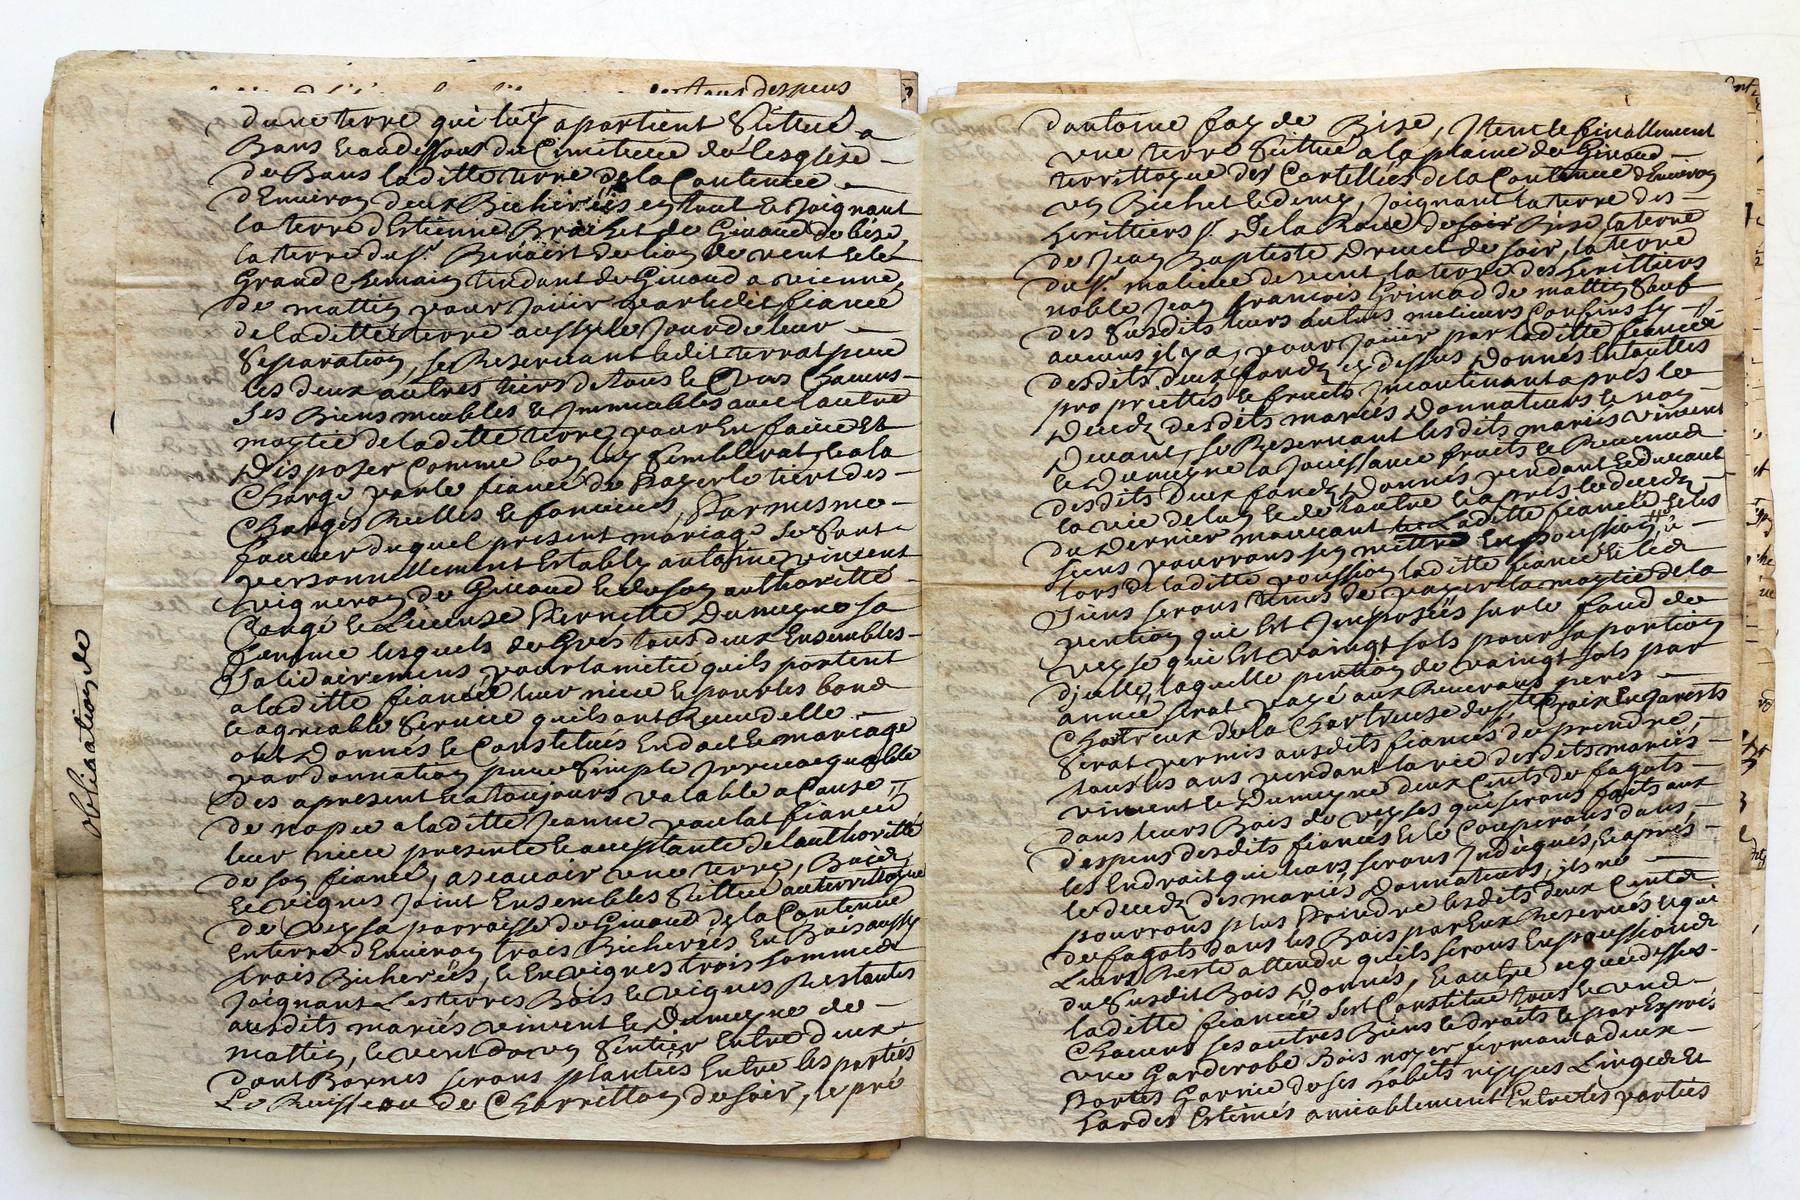 dune terre qui luy apartient Sittuée a
Bans Et audessous du Cimitiere de lesglise
de Bans laditte terre de la Contenue
d'Environ deux Bicherées en tout Et Joignant
la terre d'Estienne Brachet de Givaud de bise
la terre du Sr. Benoist de vent Et le
Grand Chemain tendant de Givaud a vienne
de mattin pour Jouir par ledit fiancé
de laditte terre aussy le Jour de leur
Separation, se Reservant ledit terrat pere
les deux autres tiers de tous Et Uns Chacuns
Ses Biens meubles Et Immeubles avec l'autre
moytié de laditte terre pour En faire Et
Disposer Comme bon luy Semblerat, Et a la
Charge par le fiancé de Payer le tiert des
Charges Reelles Et fonciéres, Par mesme
faveur duquel present mariage Se Sont
personnellement Establys antoine vincent
vigneron de Givaud Et de son authoritté
Congé Et License Pernette Dumeyne sa
femme lesquels de Gres tous deux Ensembles
Solidairement pour lamitié quils portent
a laditte fiancée leur niece Et pour les bons
Et agreable Service quils ont Receu delle
ont Donnés Et Constitués En dot Et mariage
par donnation pure Simple Irrevocquable
des apresent Et a toujours valable a Cause
de nopce a laditte Jeanne fiancée
leur niece presente Et acceptante de lauthoritté
de son fiancé, ascavoir une terre, Bois
Et vignes Joint Ensembles Sittue au territtoyre
de Veysse parroisse de Givaud de la Contenue
En terre d'Environ trois Bicherées En Bois aussy
trois Bicherées, Et En vignes trois hommées
Joignant Les terres Bois Et vignes Restantes
ausdits mariés vincent Et Dumeyne de
mattin, Et vent un Sentier Entre deux
dont Bornes serons plantées Entre les parties
Le Ruisseau de Charrillon de soir, le pré
Obligation de
d'antoine fay de Bise, Item Et finallement
une terre Sittue a la plaine de Givaud
territtoyre des Cartelliers de la Contenue d'Environ
un Bichet Et demy, Joignant la terre des
heritiers Sr. De la Roue de soir Bise la terre
de Jean Baptiste Drevet de soir, la terre
du Sr. de vent, la terre des herittiers
noble Jean francois Grimod de mattin Sauf
des Susdits leurs autres meilleurs Confins sy
aucuns il y a, pour Jouir par laditte fiancée
desdits deux fondz cy dessus Donnés En toutes
propriettés Et fruits Incontinant apres le
Decedz desdits mariés Donnateurs Et non
Devant, se Reservant lesdits mariés vincent
Et Dumeyne la Jouissance fruits Et Revenus
desdits deux fondz Donnés pendant Et durant
la vie de lun Et de lautre Et apres le decedz
du Dernier mourant laditte fiancée Et les
siens pourrons sen mettre En possession Et a
lors de laditte possion laditte fiancée Et les
Siens serons tenus de payer la moytié de la
pention qui Est Imposée sur le fond de
Veysse qui Est vaingt sols pour sa portion
d'jcelle, laquelle pention de vaingt sols par
année serat payé aux Reverans peres
Chartreux de la Chartreuse de Ste. Croix En Jarests
Serat permis ausdits fiancés de prendre
tous les ans pendant la vie desdits mariés
vincent Et Dumeyne deux Cents de fagots
dans leurs Bois de veysses qui serons faits aux
despens desdits fiancés Et le Couperons dans
les Endroit qui leurs serons Indicqués, Et aprés
le decedz des mariés Donnateurs, ils ne
pourrons plus Prendre lesdits deux Cents
de fagots dans les Bois par Eux Reservés Et qui
Leurs Reste attendu quils serons En possession
du Susdit Bois Donnés, Et outre ce que dessus
laditte fiancée sest Constitué tous Et uns
Chacuns ses autres Biens Et droits Et par Exprés
une Garderobe Bois noyer fermant a deux
Portes Garnie de ses habits nippes Linges Et
hardes Estimés amiablement Entre les parties